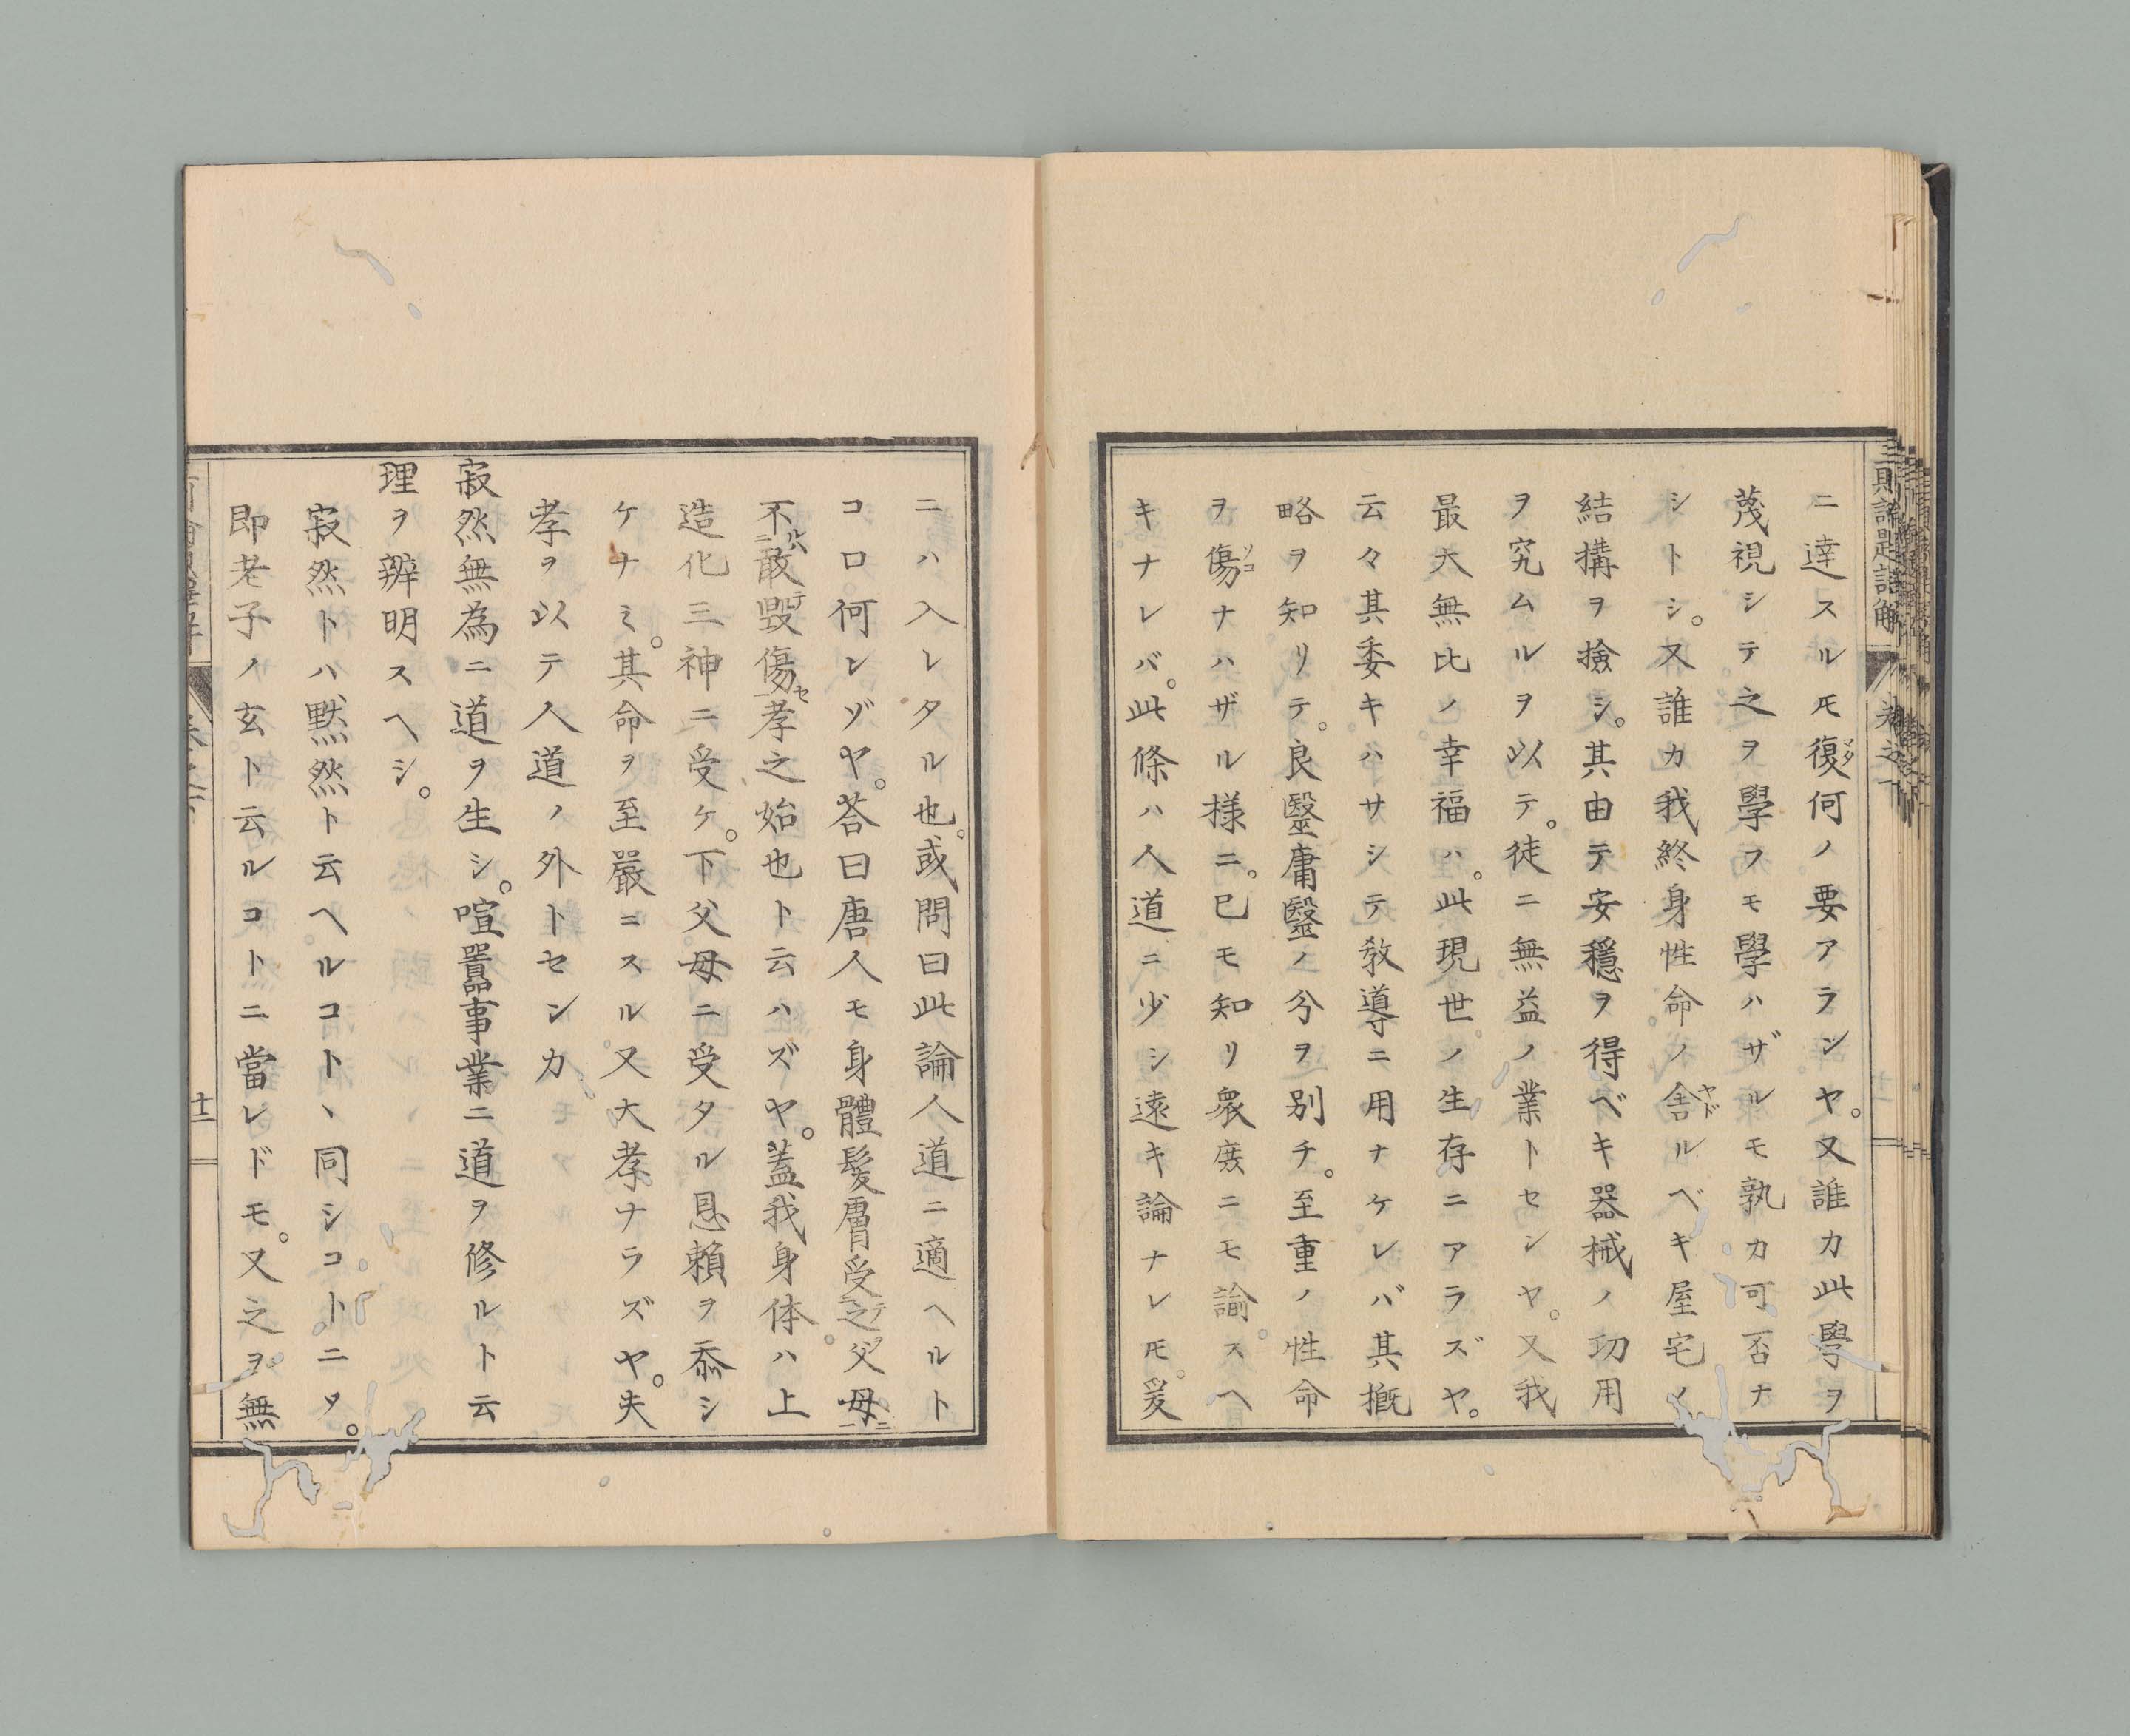 ニ達スルモ復何ノ要アランヤ。又誰カ此學ヲ
蔑視シテ之ヲ學フモ學ハザルモ孰カ可否ナ
シトシ。又誰カ我終身性命ノ舎ルベキ屋宅ノ
結搆ヲ撿シ。其由テ安穩ヲ得ベキ器械ノ功用
ヲ究ムルヲ以テ。徒ニ無益ノ業トセンヤ。又我
最大無比ノ幸福ハ。此現世ノ生存ニアラズヤ。
云々其委キハサシテ敎導ニ用ナケレバ其摡
略ヲ知リテ。良毉庸毉ノ分ヲ別チ。至重ノ性命
ヲ傷ナハザル様ニ。已モ知リ衆庻ニモ諭スヘ
キナレバ。此條ハ人道ニ少シ遠キ論ナレ𪜈。爰
ニハ入レタル也。或問曰此論人道ニ適ヘルト
コロ何レゾヤ。荅曰唐人モ身體髮膚受之父母
不敢毀傷孝之始也ト云ハズヤ。蓋我身体ハ上
造化三神ニ受ケ。下父母ニ受タル恩賴ヲ忝シ
ケナミ。其命ヲ至嚴ニスル又大孝ナラズヤ。夫
孝ヲ以テ人道ノ外トセンカ
寂然無為ニ道ヲ生シ。喧囂事業ニ道ヲ修ルト云
理ヲ辨明スヘシ。
寂然トハ默然ト云ヘルコトヽ同シコトニヲ。
即老子ノ玄ト云ルコトニ當レドモ。又之ヲ無
十二